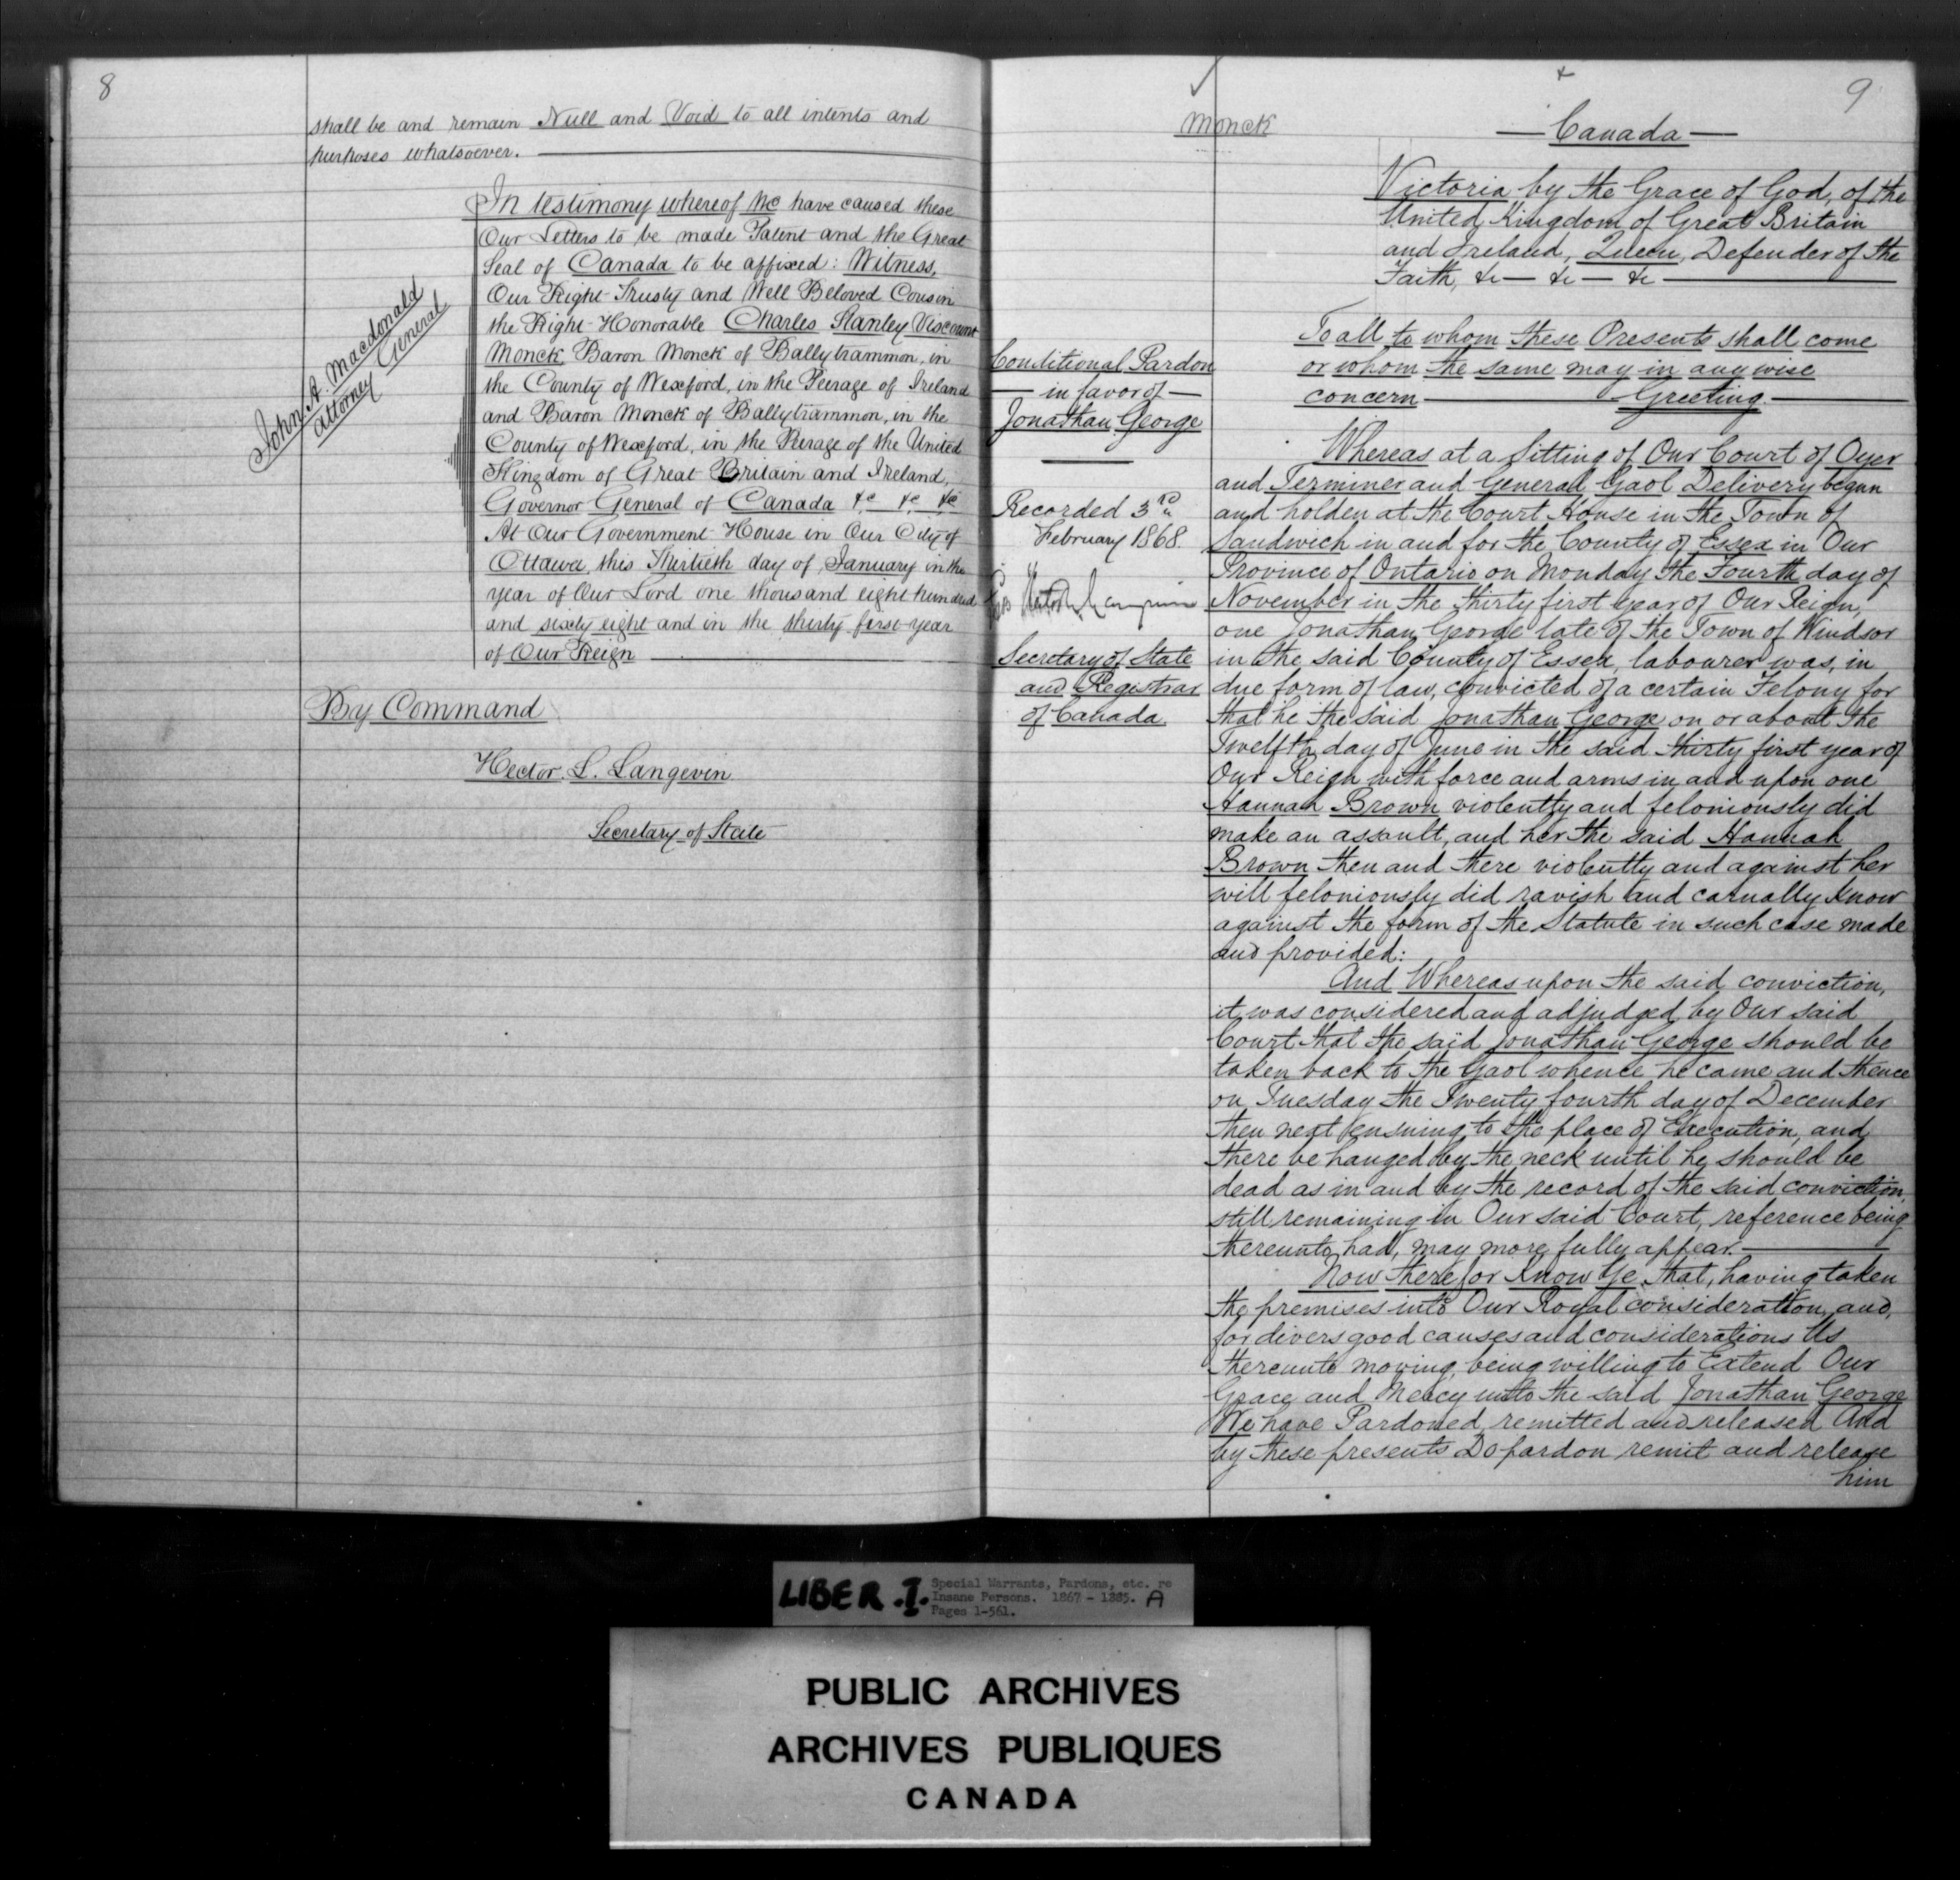 8
shall be and remain Null and Void to all intents and
purposes whatsoever.
In testimony whereof We have caused these
Our Letters to be made Patent and the Great
Seal of Canada to be affixed: Witness,
Our Right Trusty and Well Beloved Cousin
the Right Honorable Charles Stanley Viscount
Monck Baron Monck of Ballytrammon, in
the County of Wexford, in the Peerage of Ireland
and Baron Monck of Ballytrammon, in the
County of Wexford, in the Peerage of the United
Kingdom of Great Britain and Ireland,
Governor General of Canada &c &c &c
At Our Government House in Our City of
Ottawa, this Thirtieth day of January in the
year of Our Lord one thousand eight hundred
and sixty eight and in the thirty first year
of Our Reign
John A. Macdonald
Attorney General
By Command
Hector. L. Langevin
Secretary of State
9
Monck
Canada
Victoria by the Grace of God, of the
United Kingdom of Great Britain
and Ireland, Queen, Defender of the
Faith, &c — &c — &c
To all to whom these Presents shall come
or whom the same may in anywise
concern — Greeting.
Conditional Pardon
— in favor of —
Jonathan George
Recorded 3rd
February 1868.
Secretary of State
and Registrar
of Canada.
Whereas at a Sitting of Our Court of Oyer
and Terminer and General Gaol Delivery begun
and holden at the Court House in the Town of
Sandwich in and for the County of Essex in Our
Province of Ontario on Monday the Fourth day of
November in the thirty first year of Our Reign,
one Jonathan George late of the Town of Windsor
in the said County of Essex, labourer was, in
due form of law, convicted of a certain Felony for
that he the said Jonathan George on or about the
Twelfth day of June in the said thirty first year of
Our Reign with force and arms in and upon one
Hannah Brown violently and feloniously did
make an assault, and her the said Hannah
Brown then and there violently and against her
will feloniously did ravish and carnally know
against the form of the Statute in such case made
and provided:
And Whereas upon the said conviction,
it was considered and adjudged by Our said
Court that the said Jonathan George should be
taken back to the Gaol whence he came and thence
on Tuesday the Twenty fourth day of December
then next ensuing to the place of Execution, and
there be hanged by the neck until he should be
dead as in and by the record of the said conviction,
still remaining in Our said Court, reference being
thereunto had, may more fully appear.
Now therefor Know Ye that, having taken
the premises into Our Royal consideration, and,
for divers good causes and considerations Us
thereunto moving, being willing to Extend Our
Grace and Mercy unto the said Jonathan George
We have Pardoned, remitted and released And
by these presents Do pardon remit and release
him
LIBER. I.
Special Warrants, Pardons, etc. re
Insane Persons. 1867 - 1885. A
Pages 1-561.
PUBLIC ARCHIVES
ARCHIVES PUBLIQUES
CANADA